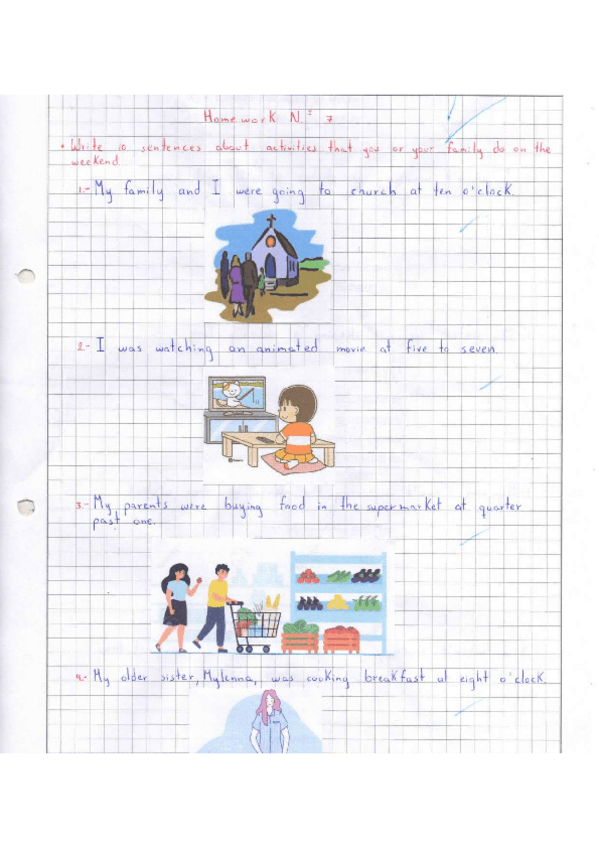 Homework N.º 7
• Write 10 sentences about activities that you or your family do on the
weekend
1.- My family and I were going to church at ten o'clock.
2.- I was watching an animated movie at five to seven.
3.- My parents were buying food in the supermarket at quarter
past one.
4.- My older sister, Mylenna, was cooking breakfast at eight o'clock.